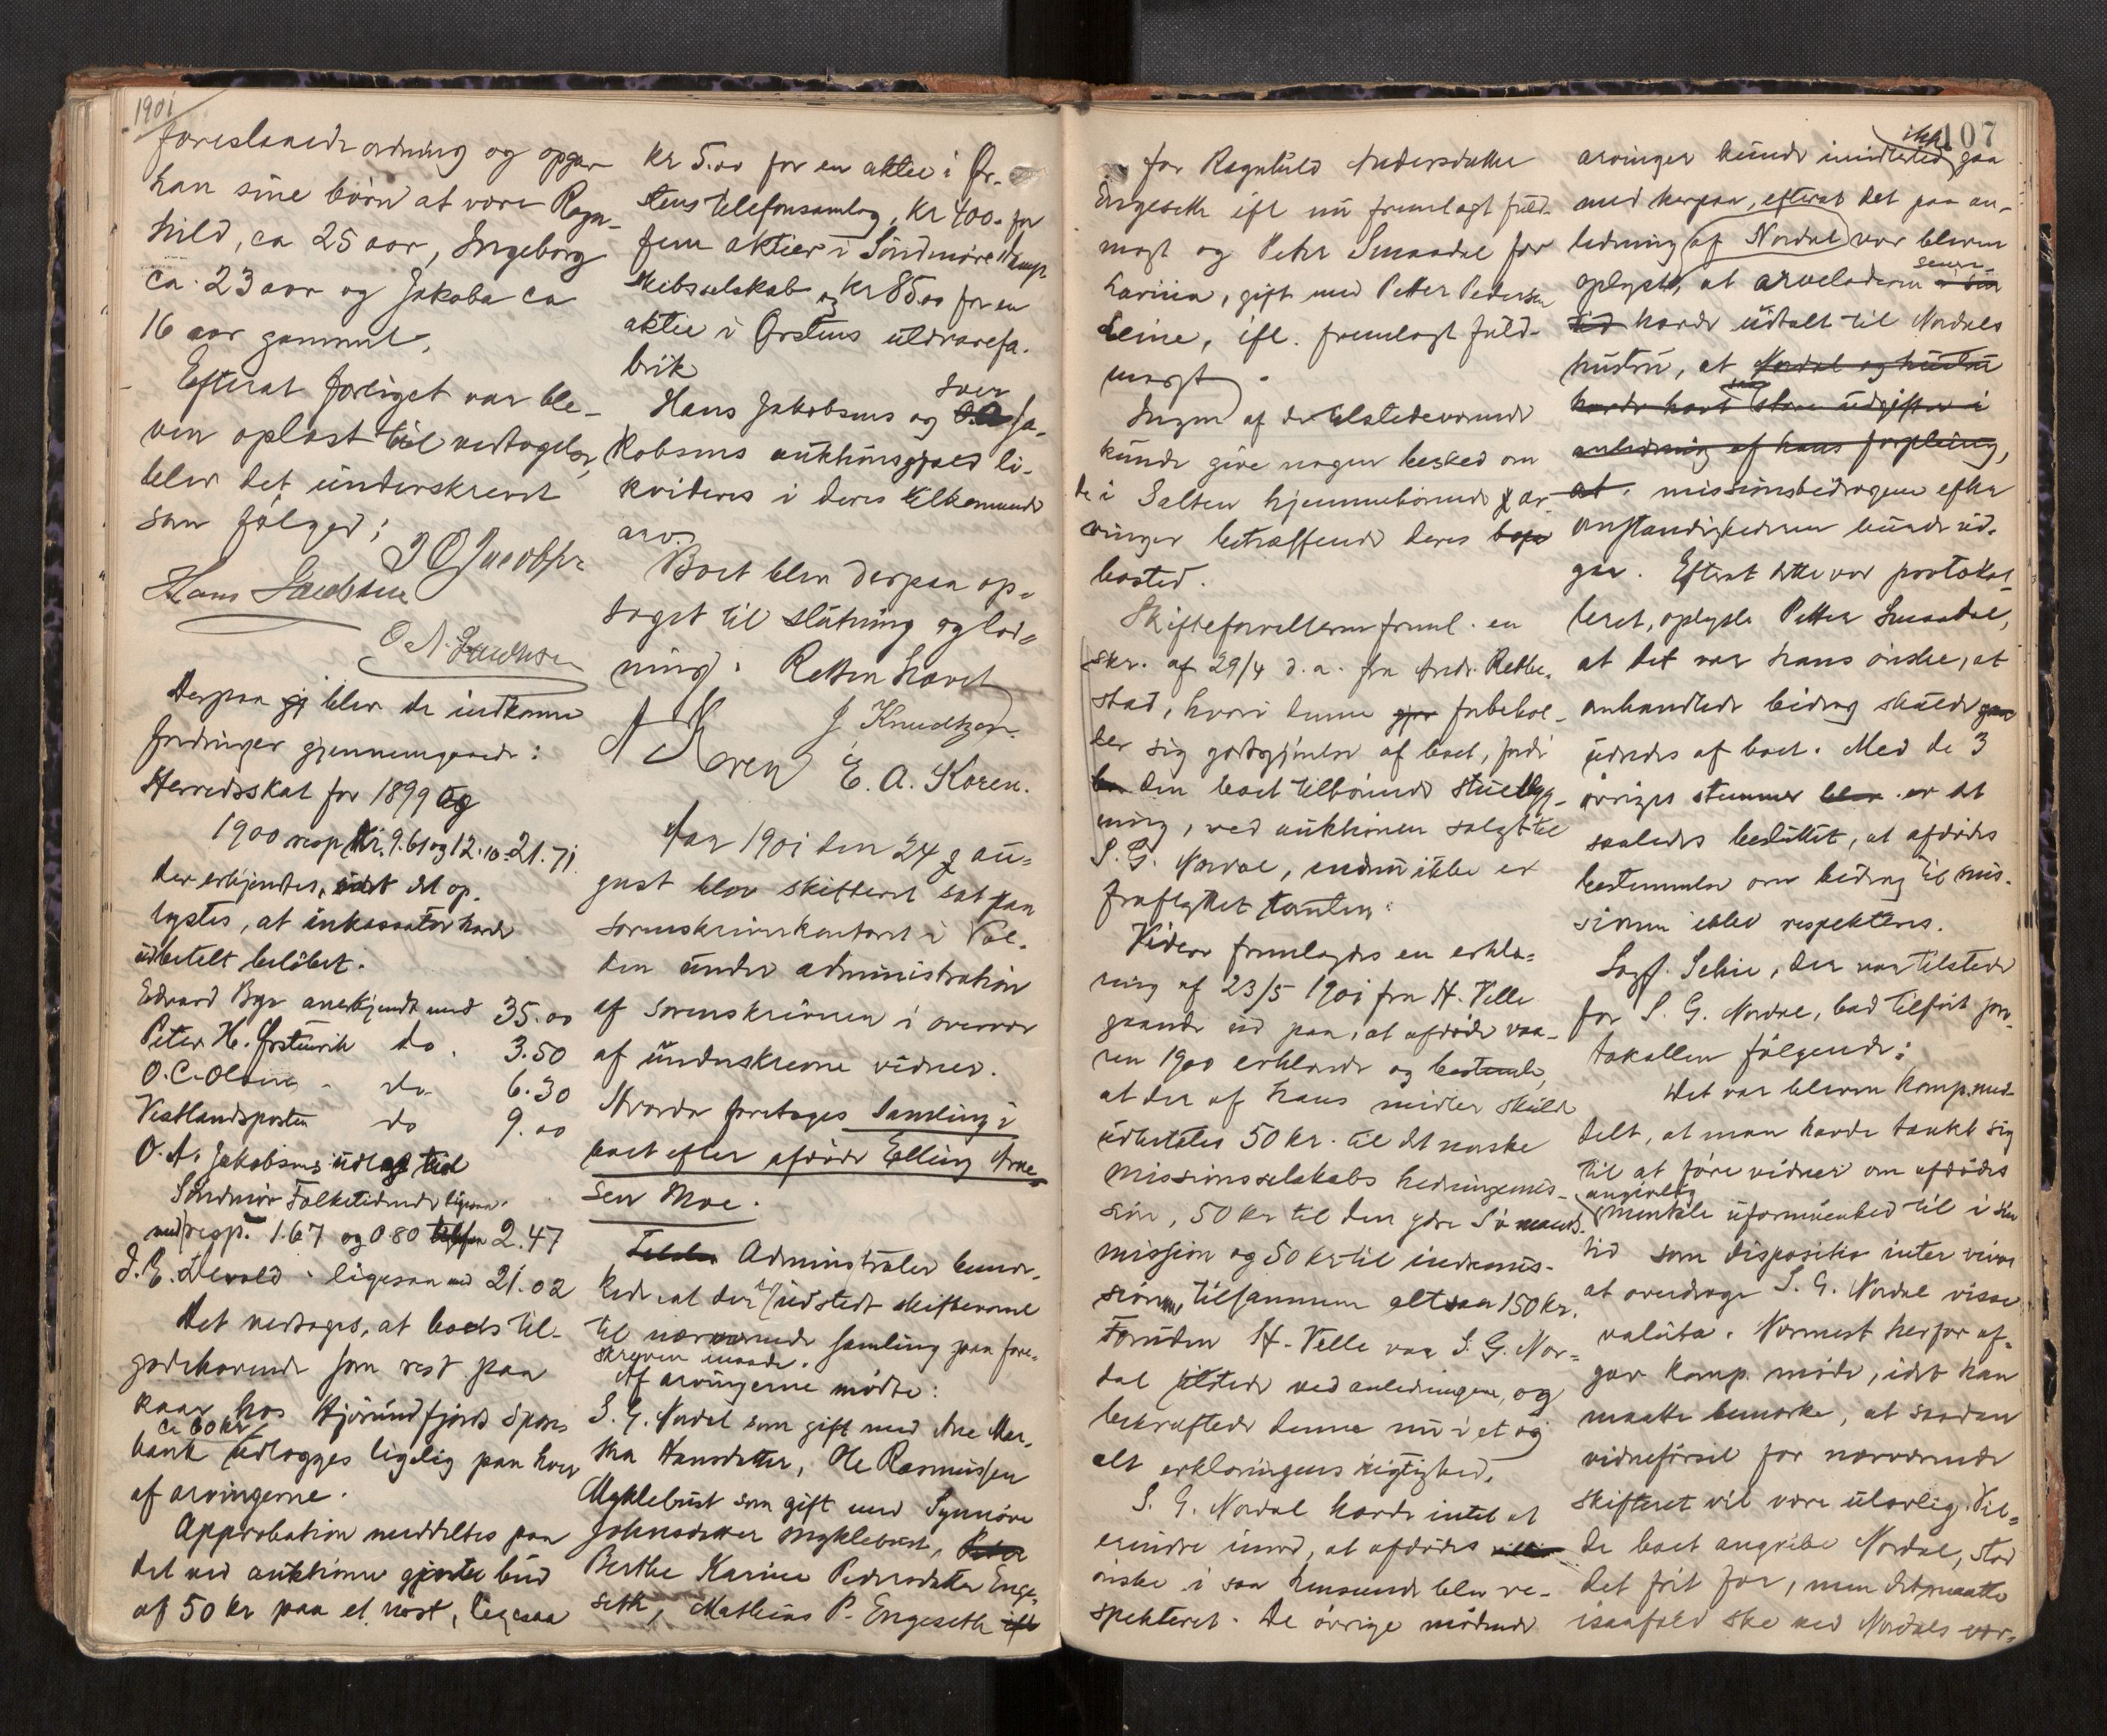 1901
foreslaaede ordning og opgav
han sine børn at være Ragn-
hild, ca 25 aar, Ingeborg
ca. 23 aar og Jakoba ca
16 aar gammel.
Efterat forliget var ble-
ven oplæst til vedtagelse,
blev det underskrevet
som følger:
J O Jacobsen
Hans Jacobsen
O A. Jacobsen
Derpaa gj blev de indkomne
fordringer gjennemgaaede:
Herredsskat for 1899 og
1900 resp kr. 9.61 og 12.10 = 21.71.
der erkjendtes, idet det op-
lystes, at inkassator havde
udbetalt beløbet.
Edvard Bye anerkjendt med 35.00
Peter H. Ørstenvik do. 3.50
O. C. Olsen - do 6.30
Vestlandsposten do 9.00
O. A. Jakobsens udlæg til
Søndmør Folketidende ligesaa
med resp. 1.67 og 0.80 2.47
J. E. Devold ligesaa med 21.02
Det vedtages, at boets til-
godehavende som rest paa
kaar hos Hjørundfjords Spare
ca 60 kr
bank udlægges ligelig paa hver
af arvingerne.
Approbation meddeltes paa
det ved auktionen gjorte bud
af 50 kr paa et nøst, ligesaa
kr 5.00 for en aktie i Ør-
stens telefonsamlag, kr 400. for
fem aktier i Søndmøre Damp
skibsselskab og kr 85.00 for en
aktie i Ørstens uldvarefa-
brik
Hans Jakobsens og Iver Ja-
kobsens auktionsgjæld li-
kvideres i deres tilkommende
arv.
Boet blev derpaa op-
taget til slutning og lod-
ning. Retten hævet
J. Knudtzon.
A Koren E. A. Koren.
Aar 1901 den 24 au-
gust blev skifteret sat paa
sorenskriverkontoret i Vol-
den under administration
af sorenskriveren i overvær
af underskrevne vidner.
Hvorda foretages Samling i
boet efter afdøde Elling Arne-
sen Moe.
Administrator bemær-
kede at der er udstedt skiftevarsel
til nærværende samling paa fore-
skreven maade.
Af arvingerne mødte:
S. G. Nordal som gift med Ane Mar-
tha Hansdatter, Ole Rasmussen
Myklebust som gift med Synnøve
Johnsdatter Myklebust, Peter
Berthe Karine Pedersdatter Enge-
seth, Mathias P. Engeseth ifl
107
for Ragnhild Andersdatter
Engeseth ifl nu fremlagt fuld-
magt og Peter Smaadal for
Lavina, gift med Petter Pedersen
Leine, ifl. fremlagt fuld-
magt.
Ingen af de tilstedeværende
kunde give nogen besked om
de i Salten hjemmehørende ar-
vinger betræffende deres bopæ
bosted.
Skifteforvalteren freml. en
skr. af 29/4 d.a. fra Andr. Rebbe-
stad, hvori denne gjør forbehol-
der sig godtgjørelse af boet, fordi
bo den boet tilhørende stuebyg-
ning, ved auktionen solgt til
S. G. Nordal, endnu ikke er
fraflyttet tomten.
Videre fremlagdes en erklæ-
ring af 23/5 1901 fra H. Velle
gaaende ud paa, at afdøde vaa-
ren 1900 erklærede og bestemte,
at der af hans midler skulde
udbetales 50 kr. til det norske
missionsselskabs hedningemis-
sion, 50 kr til den ydre Sømands
mission og 50 kr til indremis-
sionen, tilsammen altsaa 150 kr.
Foruden H. Velle var S. G. Nor-
dal tilstede ved anledningen, og
bekræftede denne nu i et og
alt erklæringens rigtighed.
S. G. Nordal havde intet at
erindre imod, at afdødes
ønske i saa henseende blev re-
spekteret. De øvrige mødende
arvinger kunde imidlertid ikke gaa
med herpaa, efterat det paa an-
ledning af Nordal var bleven
oplyst, at arveladeren senere i sin
tid havde udtalt til Nordals
hustru, at Nordal og hustru
havde havt store udgifter i
anledning af hans forpleining,
at missionsbidragene efter
omstændighederne burde ud-
gaa. Efterat dette var protokol-
leret, oplyste Petter Smaadal,
at det var hans ønske, at
omhandlede bidrag skulde gaa
udredes af boet. Med de 3
øvriges stemmer blev er det
saaledes besluttet, at afdødes
bestemmelse om bidrag til mis-
sionen ikke respekteres.
Sagf. Schie, der var tilstede
for S. G. Nordal, bad tilført pro-
tokollen følgende:
Det var bleven komp. med-
delt, at man havde tænkt sig
til at føre vidner om afdødes
angivelig
mentale uformuenhed til i sin
tid som dispositio inter vivos
at overdrage S. G. Nordal visse
valuta. Nærmest herfor af-
gav komp. møde, idet han
maatte bemærke, at saadan
vidneførsel for nærværende
skifteret vil være ulovlig. Vil-
de boet angribe Nordal, stod
det frit for, men det maatte
isaafald ske ved Nordals vær-